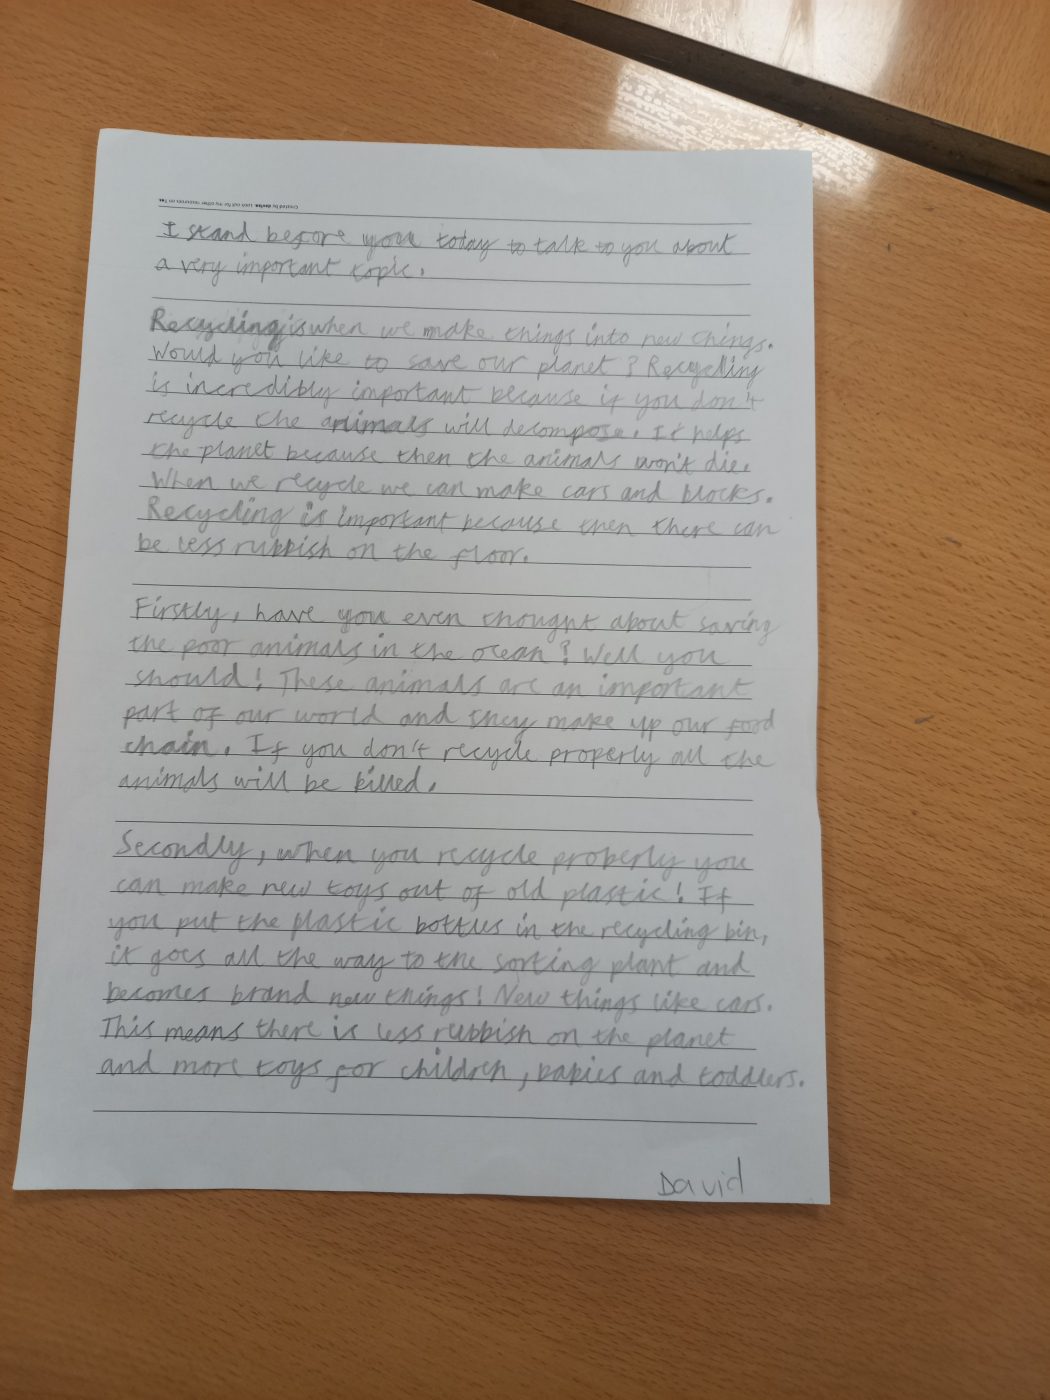 I stand before you today to talk to you about
a very important topic.
Recycling is when we make things into new things.
Would you like to save our planet? Recycling
is incredibly important because if you don't
recycle the animals will decompose. It helps
the planet because then the animals won't die.
When we recycle we can make cars and blocks.
Recycling is important because then there can
be less rubbish on the floor.
Firstly, have you even thought about saving
the poor animals in the ocean? Well you
should! These animals are an important
part of our world and they make up our food
chain. If you don't recycle properly all the
animals will be killed.
Secondly, when you recycle properly you
can make new toys out of old plastic! If
you put the plastic bottles in the recycling bin,
it goes all the way to the sorting plant and
becomes brand new things! New things like cars.
This means there is less rubbish on the planet
and more toys for children, babies and toddlers.
David